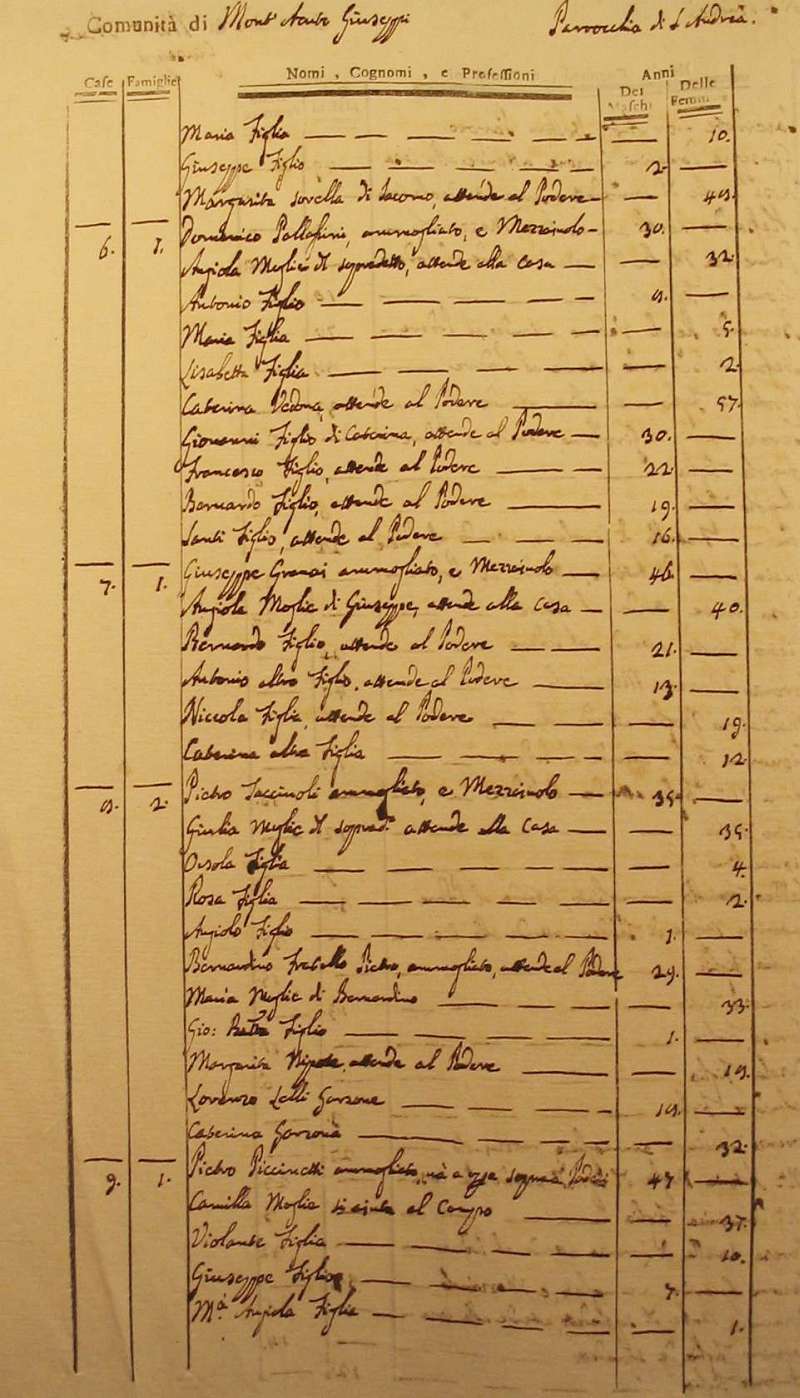 Comunità di Mont' Acuto Giuseppi Parrocchia di S Andrea.
Case Famiglie Nomi, Cognomi, e Professioni Anni
Dei Maschi Delle Femm
Maria Figlia 10.
Giuseppe Figlio 2.
Margarita sorella di Iacomo, attende al Podere 49.
6. 1. Domenico ammogliato, e Mezzaiuolo 30.
Angiola Moglie del sopradetto, attende alla Casa 32.
Antonio Figlio 9.
Maria Figlia 5.
Lisabetta Figlia 2.
Caterina Vedova, attende al Podere 57.
Giovanni Figlio di Caterina, attende al Podere 30.
Francesco Figlio, attende al Podere 22.
Bernardo Figlio, attende al Podere 19.
Santi Figlio, attende al Podere 16.
7. 1. Giuseppe ammogliato, e Mezzaiuolo 46.
Angiola Moglie di Giuseppe, attende alla Casa 40.
Bernardo Figlio, attende al Podere 21.
Antonio altro Figlio, attende al Podere 13.
Niccola Figlia, attende al Podere 19.
Caterina altra Figlia 12.
2. Pietro ammogliato, e Mezzaiuolo 35.
Giulia Moglie del soprad.º attende alla Casa 35.
Orsola Figlia 4.
Rosa Figlia 2.
Angiolo Figlio 1.
Bernardino Fratello Pietro, ammogliato, attende al Podere 29.
Maria Moglie di Bernardino 33.
Gio: Figlio 1.
Margarita Nipote, attende al Podere 19.
Lorenzo Lelli Garzone 19.
Caterina Garzona 32.
9. 1. Pietro ammogliato, 47.
Camilla Moglie al Campo 37.
Violante Figlia 10.
Giuseppe Figlio 7.
M.ª Angiola Figlia 1.